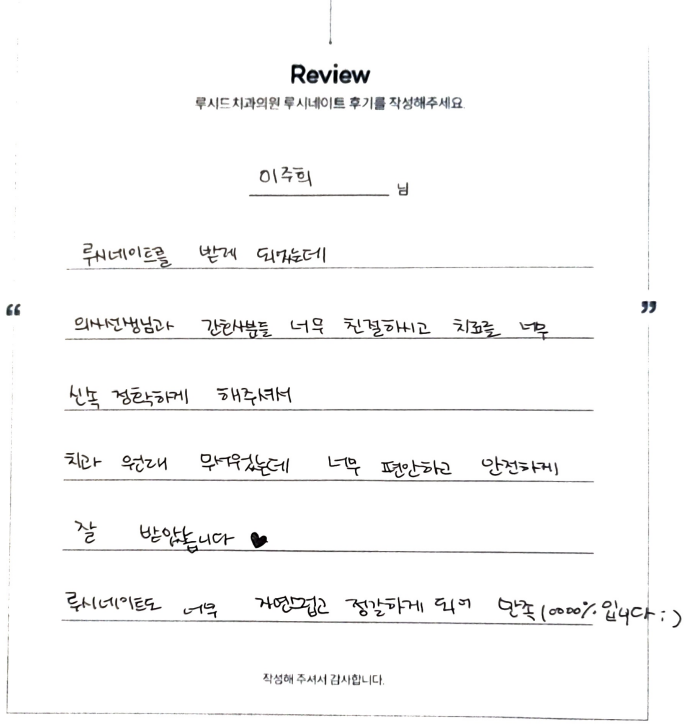 Review
루시드치과의원 루시네이트 후기를 작성해주세요.
이주희 님
루시네이트를 받게 되었는데
“ 의사선생님과 간호사분들 너무 친절하시고 치료를 너무 ”
신속 정확하게 해주셔서
치과 원래 무서웠는데 너무 편안하고 안전하게
잘 받았습니다 ♥
루시네이트도 너무 자연스럽고 정갈하게 되어 만족10000%입니다:)
작성해 주셔서 감사합니다.